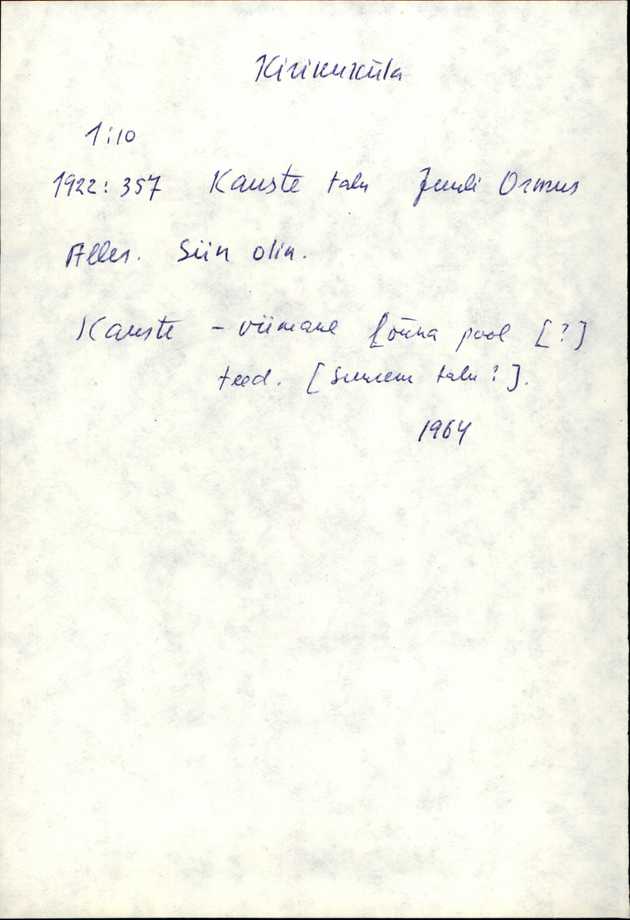 Kirikuküla
1:10
1922: 357 Kauste talu Juuli Ormus
Alles. Siin olin.
Kauste - viimane lõuna pool [?]
teed. [Suurem talu?].
1964